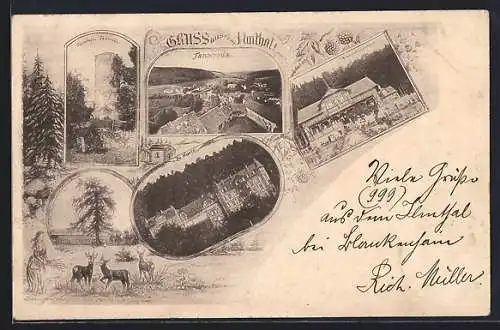 GRUSS aus Ilmthal.
Panorama
Viele Grüße
(999)
aus dem Ilmthal
bei Blankenhain
Rich. Müller.